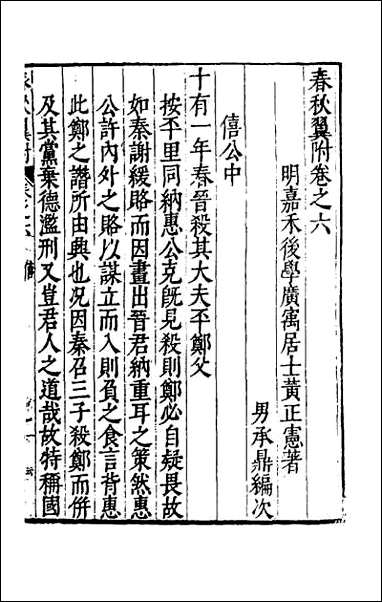 春秋翼附卷之六
明嘉禾後學廣寓居士黃正憲著
男承鼎編次
僖公中
十有一年春晉殺其大夫㔻鄭父
按㔻里同納惠公克旣見殺則鄭必自疑畏故
如秦謝緩賂而因畫出晉君納重耳之策然惠
公許內外之賂以謀立而入則負之食言背惠
此鄭之譖所由興也況因秦召三子殺鄭而倂
及其黨棄德濫刑又豈君人之道哉故特稱國